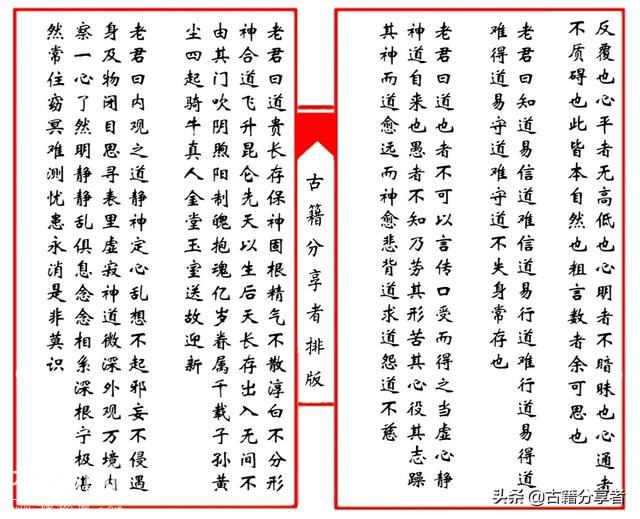 反覆也心平者无高低也心明者不暗昧也心通者
不质碍也此皆本自然也粗言数者余可思也
老君曰知道易信道难信道易行道难行道易得道
难得道易守道难守道不失身常存也
老君曰道也者不可以言传口受而得之当虚心静
神道自来也愚者不知乃劳其形苦其心役其志躁
其神而道愈远而神愈悲背道求道怨道不慈
古籍分享者排版
老君曰道贵长存保神固根精气不散淳白不分形
神合道飞升昆仑先天以生后天长存出入无间不
由其门吹阴煦阳制魄抱魂亿岁眷属千载子孙黄
尘四起骑牛真人金堂玉室送故迎新
老君曰内观之道静神定心乱想不起邪妄不侵遇
身及物闭目思寻表里虚寂神道微深外观万境内
察一心了然明静静乱俱息念念相系深根宁极湛
然常住窈冥难测忧患永消是非莫识
头条 @古籍分享者